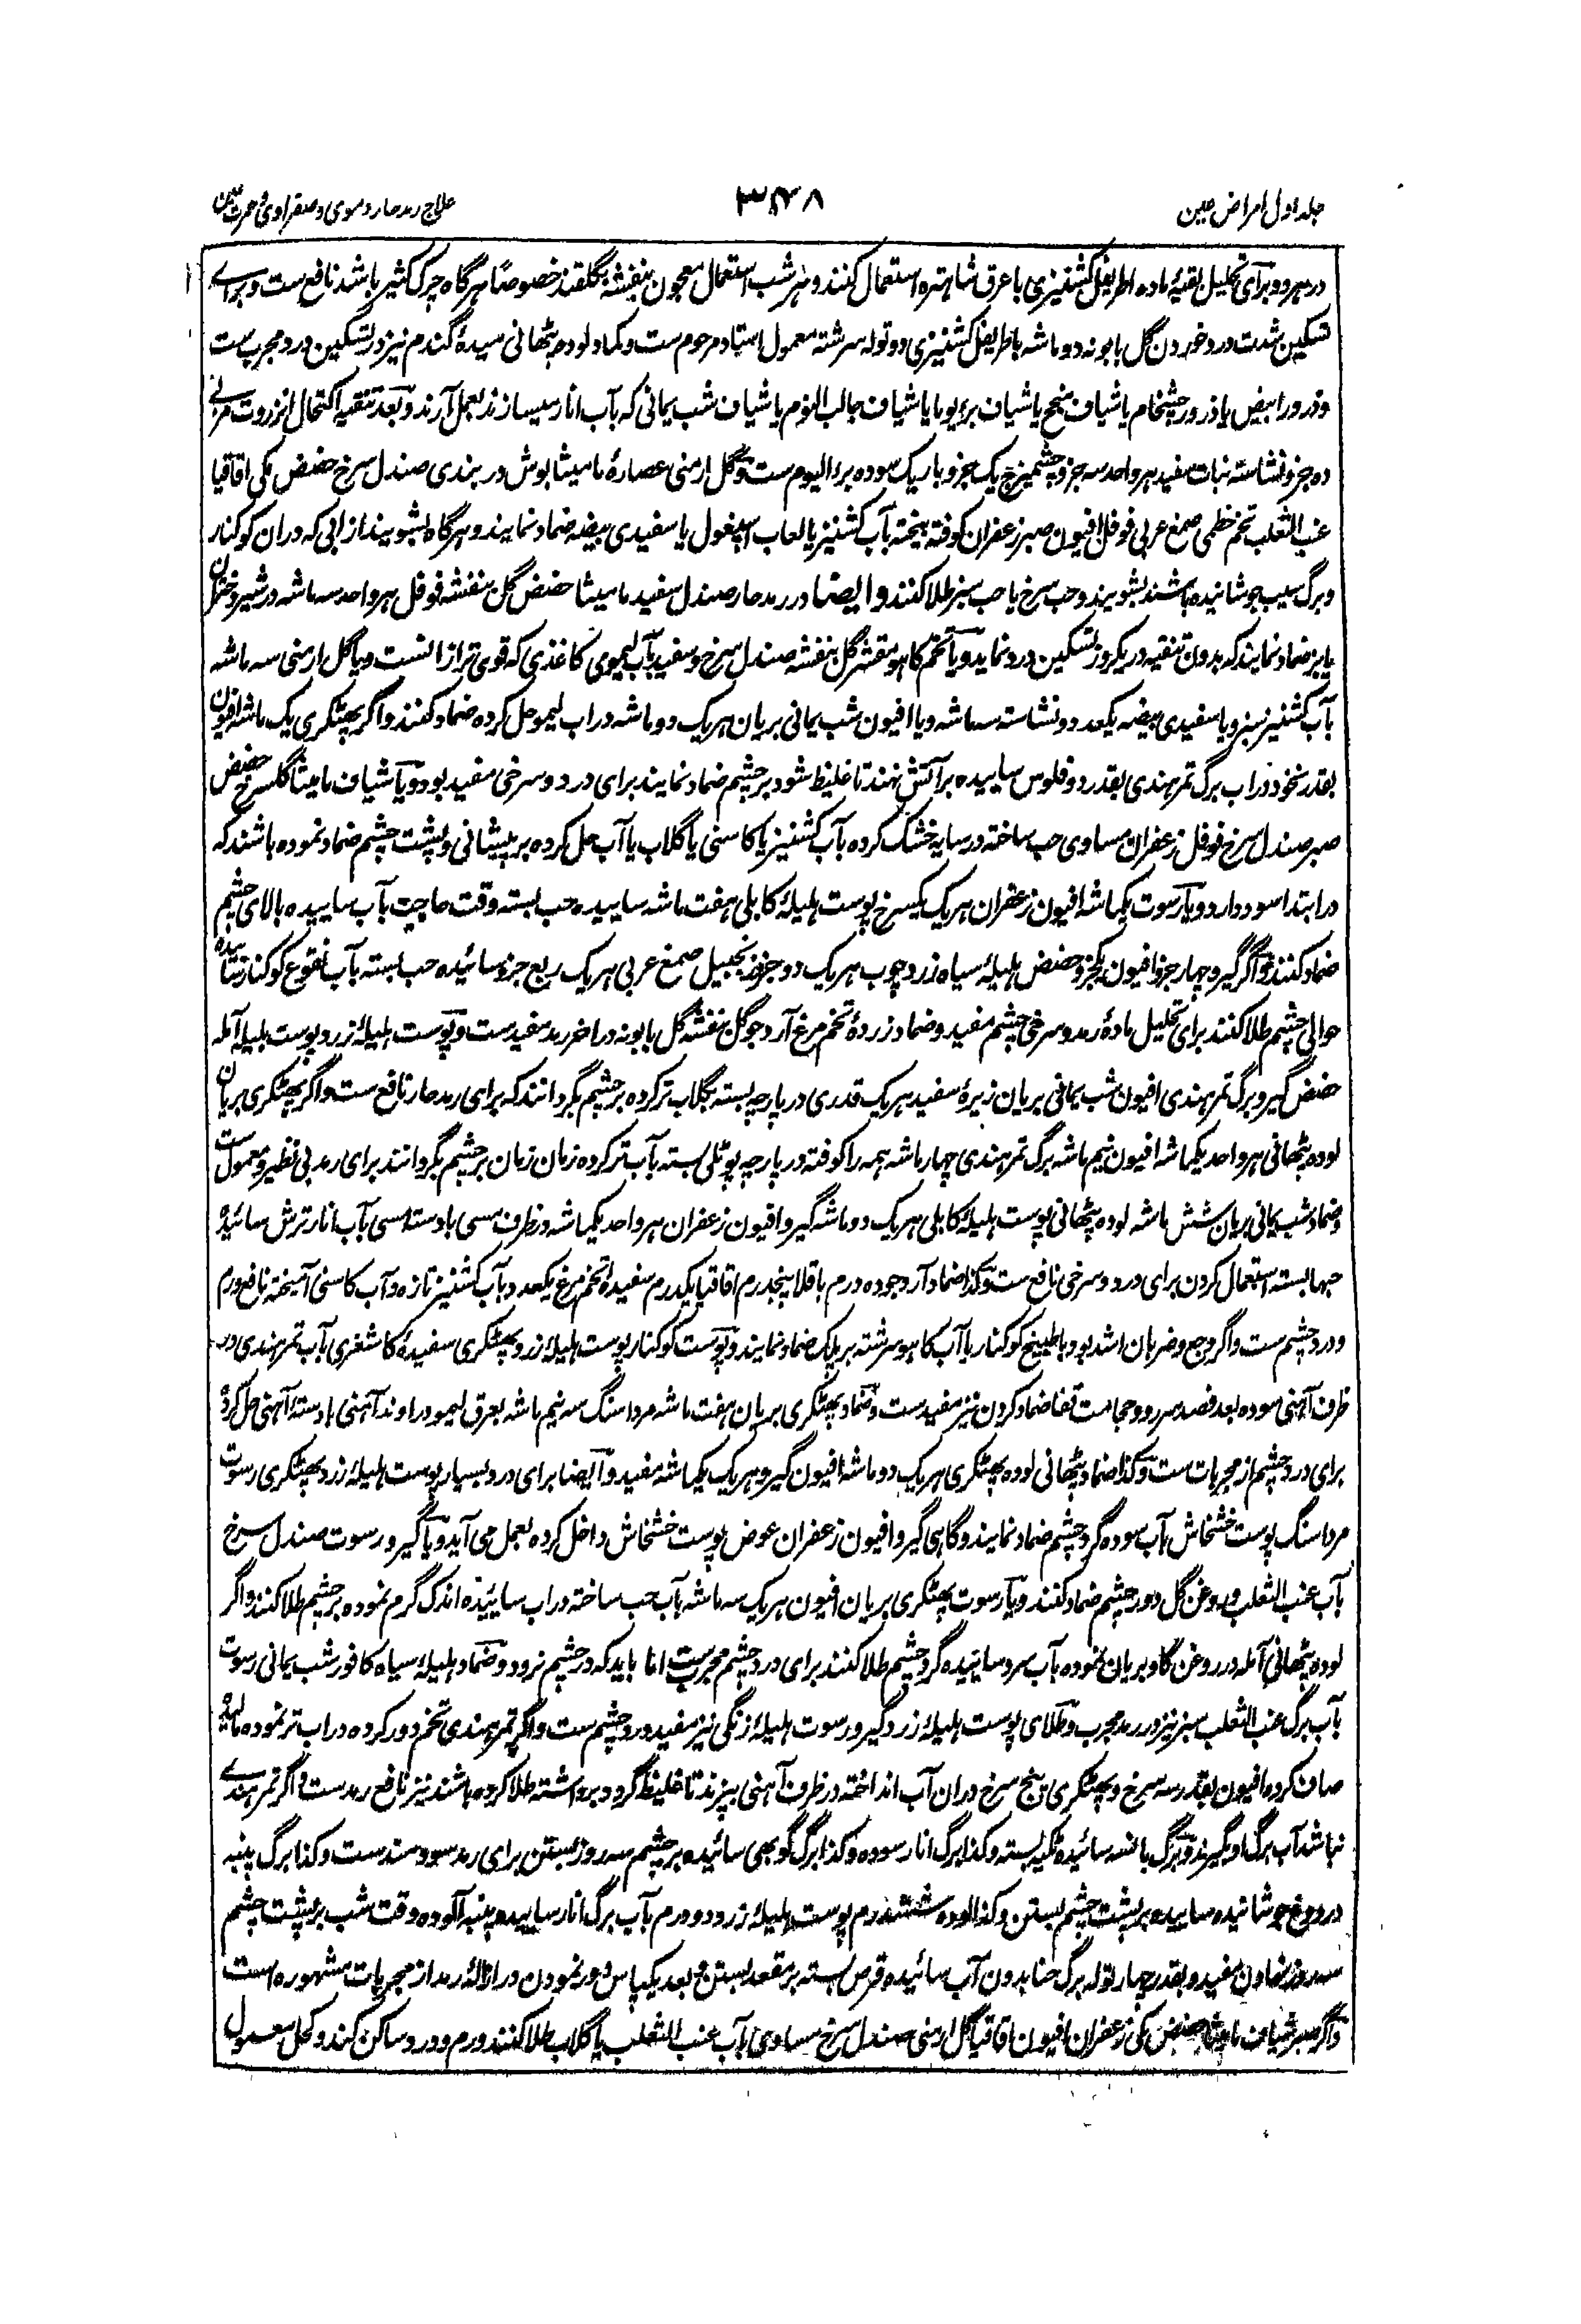 جلد اول امراض عین
۳۴۸
علاج رمد حار دموی و صفراوی و حمرت عین
در هر دو و برای تحلیل بقیهٔ ماده اطریفل کشنیزی با عرق شاهتره استعمال کنند و هر شب استعمال معجون بنفشه بگلقند خصوصاً هرگاه چرک کثیر باشد نافع ست و برای
تسکین شدت درد خوردن گل بابونه دو ماشه باطریفل کشنیزی دو توله سرشته معمول استاد مرحوم ست و کماد لودهه پٹھانی میدهٔ گندم نیز در تسکین درد مجرب ست
و ذرور ابیض یا ذرور چشخام یا شیاف منجح یا شیاف بر یوما یا شیاف جالب النوم یا شیاف شب یمانی که بآب انار میسازند بعمل آرند و بعد تنقیه اکتحال انزروت مربی
ده جزو نشاسته نبات سفید هر واحد سه جزو چشمیزج یک جزو باریک سوده برء الیوم ست و گل ارمنی عصارهٔ مامیثا بوش دربندی صندل سرخ حضض مکی اقاقیا
عنب الثعلب تخم خطمی صمغ عربی فوفل افیون صبر زعفران کوفته بیخته بآب کشنیز یا لعاب اسپغول یا سفیدی بیضه ضماد نمایند و هرگاه بشویند از ابی که دران کوکنار
و برگ سیب جوشانیده باشند بشویند و حب سرخ یا حب سبز طلا کنند و ایضاً در رمد حار صندل سفید مامیثا حضض گل بنفشه فوفل هر واحد سه ماشه در شیر دختران
یا بز ضماد نمایند که بدون تنقیه در یکروز تسکین درد نماید و یا تخم کاهو مقشر گل بنفشه صندل سرخ و سفید بآب لیموی کاغذی که قوی تر از انست و یا گل ارمنی سه ماشه
بآب کشنیز سبز و یا سفیدی بیضه یکعدد و نشاسته سه ماشه و یا افیون شب یمانی بریان هر یک دو ماشه دراب لیمو حل کرده ضماد کنند و اگر پھٹکری یک ماشه افیون
بقدر نخود دراب برگ تمر هندی بقدر دو فلوس ساییده بر آتش نهند تا غلیظ شود بر چشم ضماد نمایند برای درد و سرخی مفید بود و یا شیاف مامیثا گلسرخ حضض
صبر صندل سرخ فوفل زعفران مساوی حب ساخته در سایه خشک کرده بآب کشنیز یا کاسنی یا گلاب یا آب حل کرده بر پیشانی و پشت چشم ضماد نموده باشند که
در ابتدا سود دارد و یا رسوت یکماشه افیون زعفران هر یک یکسرخ پوست هلیلهٔ کابلی هفت ماشه ساییده حب بسته وقت حاجت بآب ساییده بالای چشم
ضماد کنند و اگر گیرو چهار جزو افیون یکجزو حضض هلیلهٔ سیاه زرد چوب هر یک دو جزو زنجبیل صمغ عربی هر یک ربع جزو سائیده حب بسته بآب نقوع کوکنار ساییده
حوالی چشم طلا کنند برای تحلیل مادهٔ رمد و سرخی چشم مفید و ضماد زردهٔ تخم مرغ آرد جو گل بنفشه گل بابونه در اخر رمد مفید ست و پوست هلیلهٔ زرد پوست بلیله آمله
حضض گیرو برگ تمر هندی افیون شب یمانی بریان زیرهٔ سفید هر یک قدری در پارچه بسته بگلاب تر کرده بر چشم بگردانند که برای رمد حار نافع ست و اگر پھٹکری بریان
لوده پٹھانی هر واحد یکماشه افیون نیم ماشه برگ تمر هندی چهار ماشه همه را کوفته در پارچه پوٹلی بسته بآب تر کرده زمان زمان بر چشم بگردانند برای رمد بی نظیر و معمول ست
و ضماد شب یمانی بریان شش ماشه لوده پٹھانی پوست هلیلهٔ کابلی هر یک دو ماشه گیرو افیون زعفران هر واحد یکماشه در ظرف مسی بادسته مسی بآب انار ترش سائیده
حبها بسته استعمال کردن برای درد و سرخی نافع ست و کذا ضماد آرد جو ده درم باقلا پنجدرم اقاقیا یکدرم سفیدهٔ تخم مرغ یکعدد بآب کشنیز تازه و آب کاسنی آمیخته نافع ورم
و درد چشم ست و اگر وجع و ضربان اشد بود با طبیخ کوکنار یا آب کاهو سرشته بر پلک ضماد نمایند و پوست کوکنار پوست هلیلهٔ زرد پھٹکری سفیدهٔ کاشغری بآب تمر هندی در
ظرف آهنی سوده بعد فصد سررو و حجامت قفا ضماد کردن نیز مفید ست و ضماد پھٹکری بریان هفت ماشه مرداسنگ سه نیم ماشه بعرق لیمو دراوند آهنی بادستهٔ آهنی حل کرده
برای درد چشم از مجربات ست و کذا ضماد پٹھانی لوده پھٹکری هر یک دو ماشه افیون گیرو هر یک یکماشه مفید و ایضاً برای درد بسیار پوست هلیلهٔ زرد پھٹکری رسوت
مرداسنگ پوست خشخاش بآب سوده گرد چشم ضماد نمایند و گاهی گیرو افیون زعفران عوض پوست خشخاش داخل کرده بعمل می آید و یا گیرو رسوت صندل سرخ
بآب عنب الثعلب و روغن گل دور چشم ضماد کنند و یا رسوت پھٹکری بریان افیون هر یک سه ماشه بآب حب ساخته دراب ساییده اندک گرم نموده بر چشم طلا کنند و اگر
لوده پٹھانی آمله در روغن گاو بریان نموده بآب سرد سائیده گرد چشم طلا کنند برای درد چشم مجرب ست اما باید که در چشم نرود و ضماد هلیلهٔ سیاه کافور شب یمانی رسوت
بآب برگ عنب الثعلب سبز نیز در رمد مجرب و طلای پوست هلیلهٔ زرد گیرو رسوت هلیلهٔ زنگی نیز مفید درد چشم ست و اگر تمر هندی تخم دور کرده دراب تر نموده مالیده
صاف کرده افیون بقدر سه سرخ و پھٹکری پنج سرخ دران آب انداخته در ظرف آهنی بپزند تا غلیظ گردد برداشته طلا کرده باشند نیز نافع رمد ست و اگر تمر هندی
نباشد آب برگ او گیرند و برگ بانسه سائیده ٹکیه بسته و کذا برگ انار سوده و کذا برگ گوبھی سائیده بر چشم سه روز بستن برای رمد سودمند ست و کذا برگ پنبه
در دوغ جوشانیده ساییده بر پشت چشم بستن و کذا لوده ششدرم پوست هلیلهٔ زرد دو درم بآب برگ انار ساییده پنبه آلوده وقت شب بر پشت چشم
سه روز نهادن مفید و بقدر چهار توله برگ حنا بدون آب سائیده قرص بسته بر مقعد بستن و بعد یکپاس دور نمودن در ازالهٔ رمد از مجربات مشهوره است
و اگر صبر شیاف مامیثا حضض مکی زعفران افیون اقاقیا گل ارمنی صندل سرخ مساوی بآب عنب الثعلب یا گلاب طلا کنند ورم و درد ساکن کند و کحل معمول